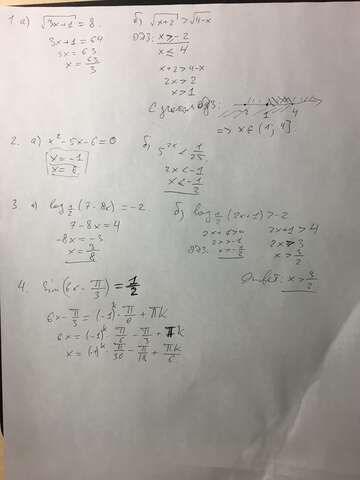 1. а) √3x+1 = 8.
3x+1 = 64
3x = 63
x = 63/3
б) √x+2 > √4-x
ОДЗ: x ≥ -2
x ≤ 4
x+2 > 4-x
2x > 2
x > 1
С учетом ОДЗ:
-2 1 4
=> x ∈ (1; 4]
2. а) x² - 5x - 6 = 0
x = -1
x = 6
б) 5^2x < 1/25
2x < -1
x < -1/2
3. а) log 1/2 (7 - 8x) = -2
7 - 8x = 4
-8x = -3
x = 3/8
б) log 1/2 (2x+1) > -2
2x+1 > 4
2x > 3
x > 3/2
2x > -1
ОДЗ:
Ответ: x > 3/2
4. sin(6x - π/3) = 1/2
6x - π/3 = (-1)^k · π/6 + πk
6x = (-1)^k π/6 - π/3 + πk
x = (-1)^k · π/30 - π/18 + πk/6